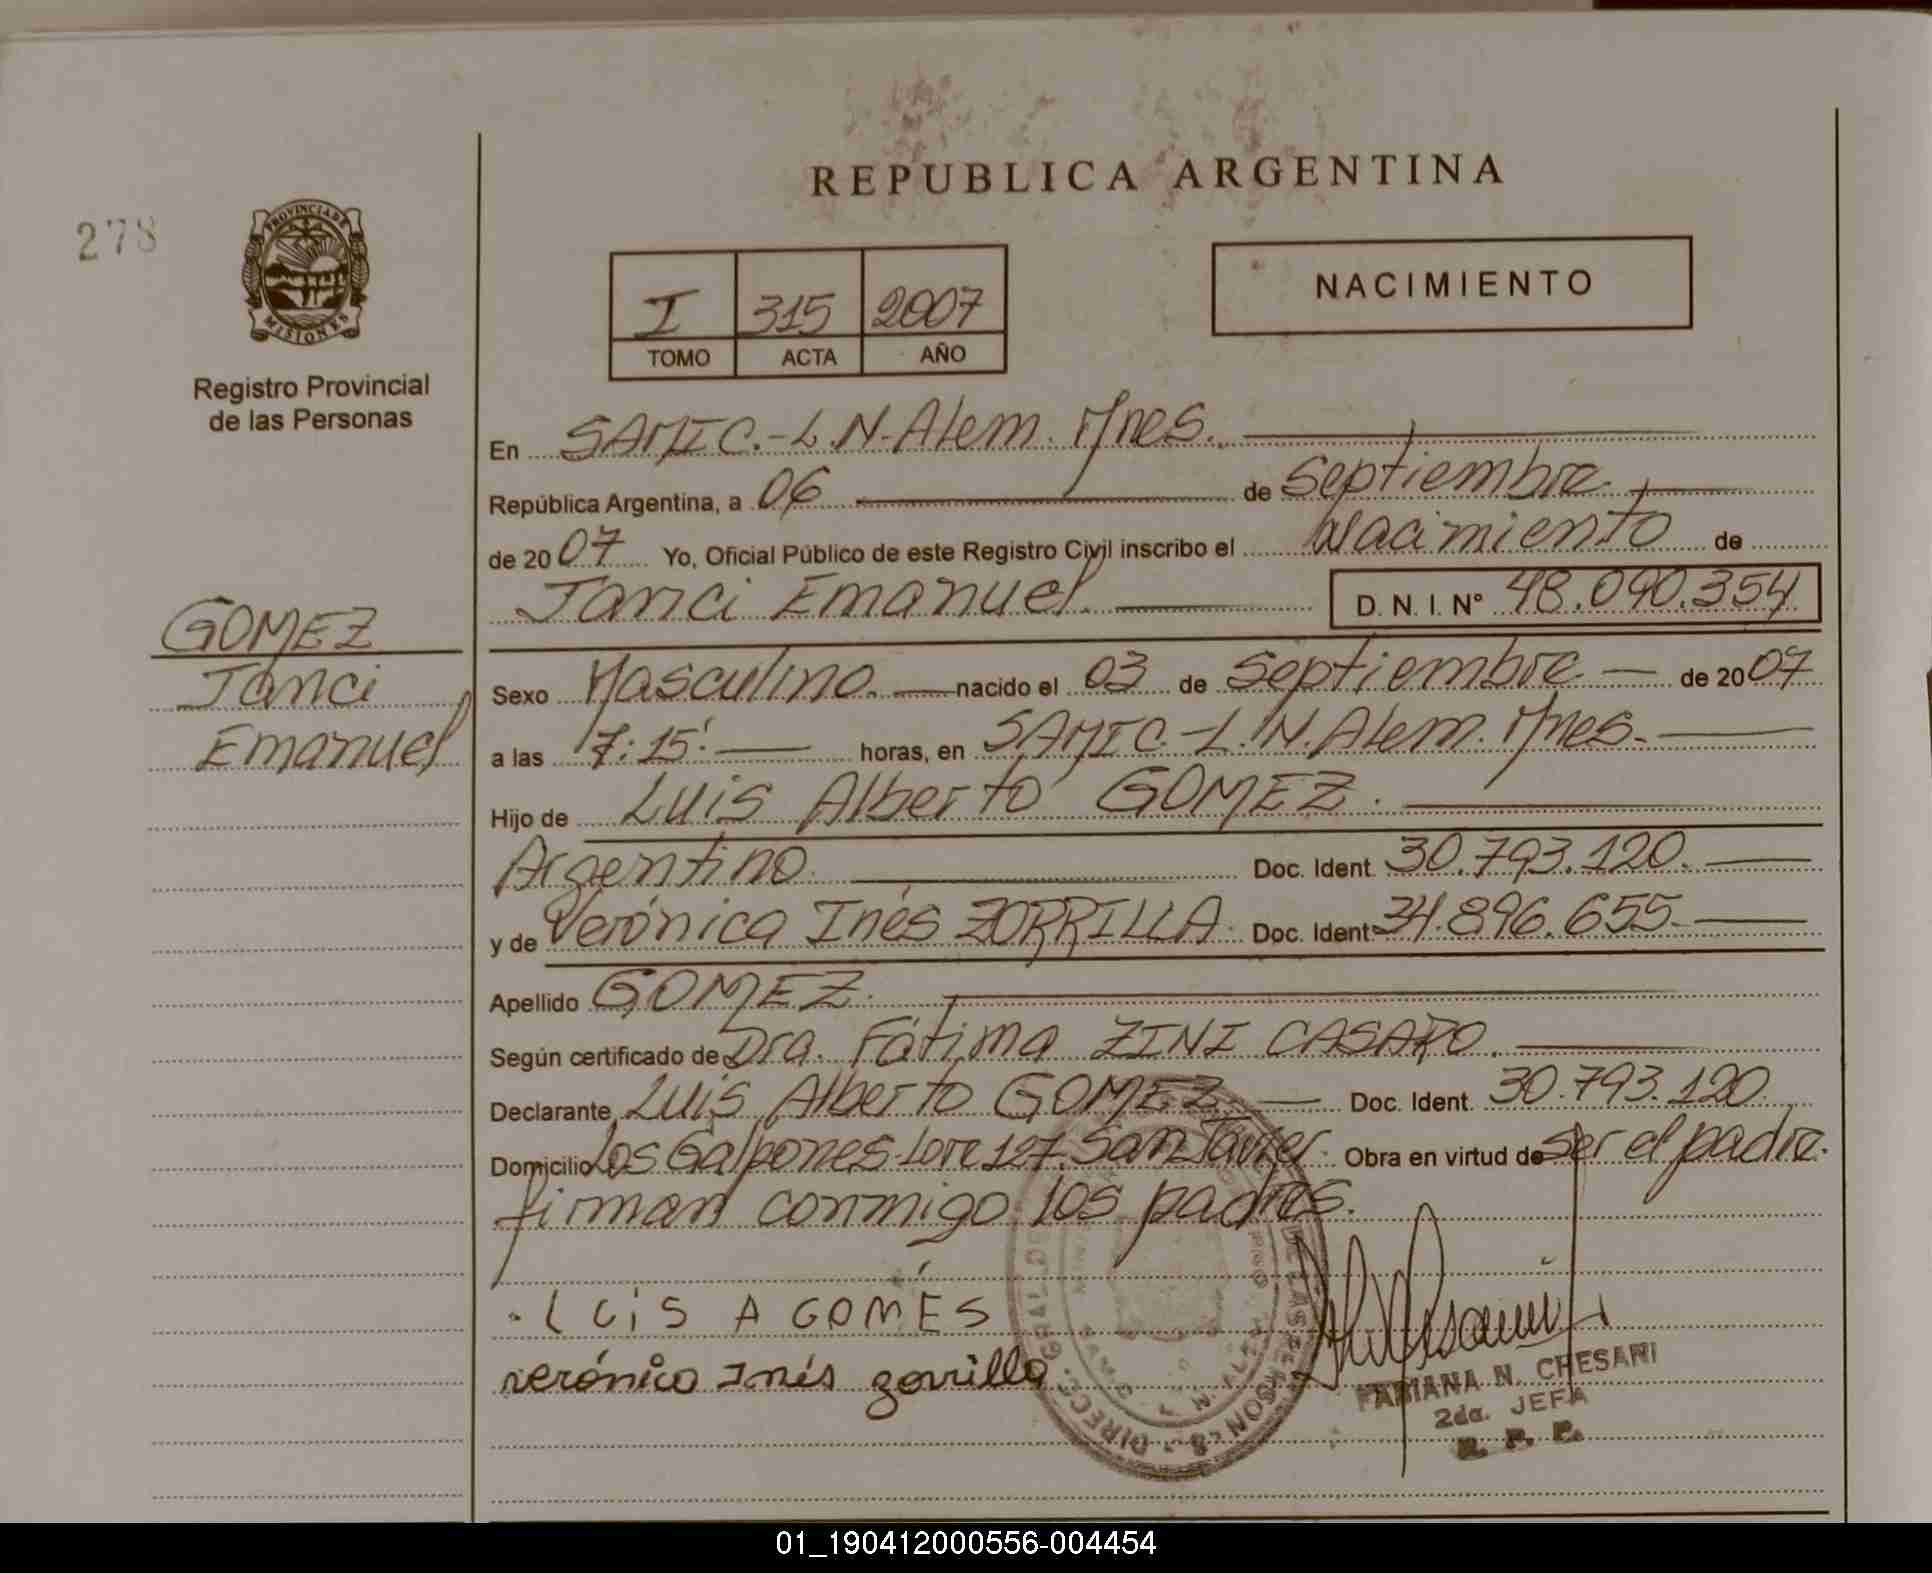 REPUBLICA ARGENTINA
278
PROVINCIA DE
MISIONES
Registro Provincial
de las Personas
I 315 2007
TOMO ACTA AÑO
NACIMIENTO
En SAMIC.-L.N-Alem. Mnes.
República Argentina, a 06 de Septiembre
de 2007 Yo, Oficial Público de este Registro Civil inscribo el Nacimiento de
Janci Emanuel. D. N. I. Nº 48.090.354
GOMEZ
Janci
Emanuel
Sexo Masculino. nacido el 03 de Septiembre de 2007
a las 7:15' horas, en SAMIC.-L.N.Alem. Mnes.
Hijo de Luis Alberto GOMEZ.
Argentino. Doc. Ident. 30.793.120.
y de Verónica Inés ZORRILLA. Doc. Ident 34.896.655
Apellido GOMEZ.
Según certificado de Dra. Fátima ZINI CASARO.
Declarante Luis Alberto GOMEZ Doc. Ident. 30.793.120
Domicilio Los Galpones-Lote 127. San Javier. Obra en virtud de ser el padre.
firman conmigo los padres.
LUIS A GOMÉS
verónica Inés zorrilla
FABIANA N. CRESANI
2da. JEFA
R. P. P.
01_190412000556-004454